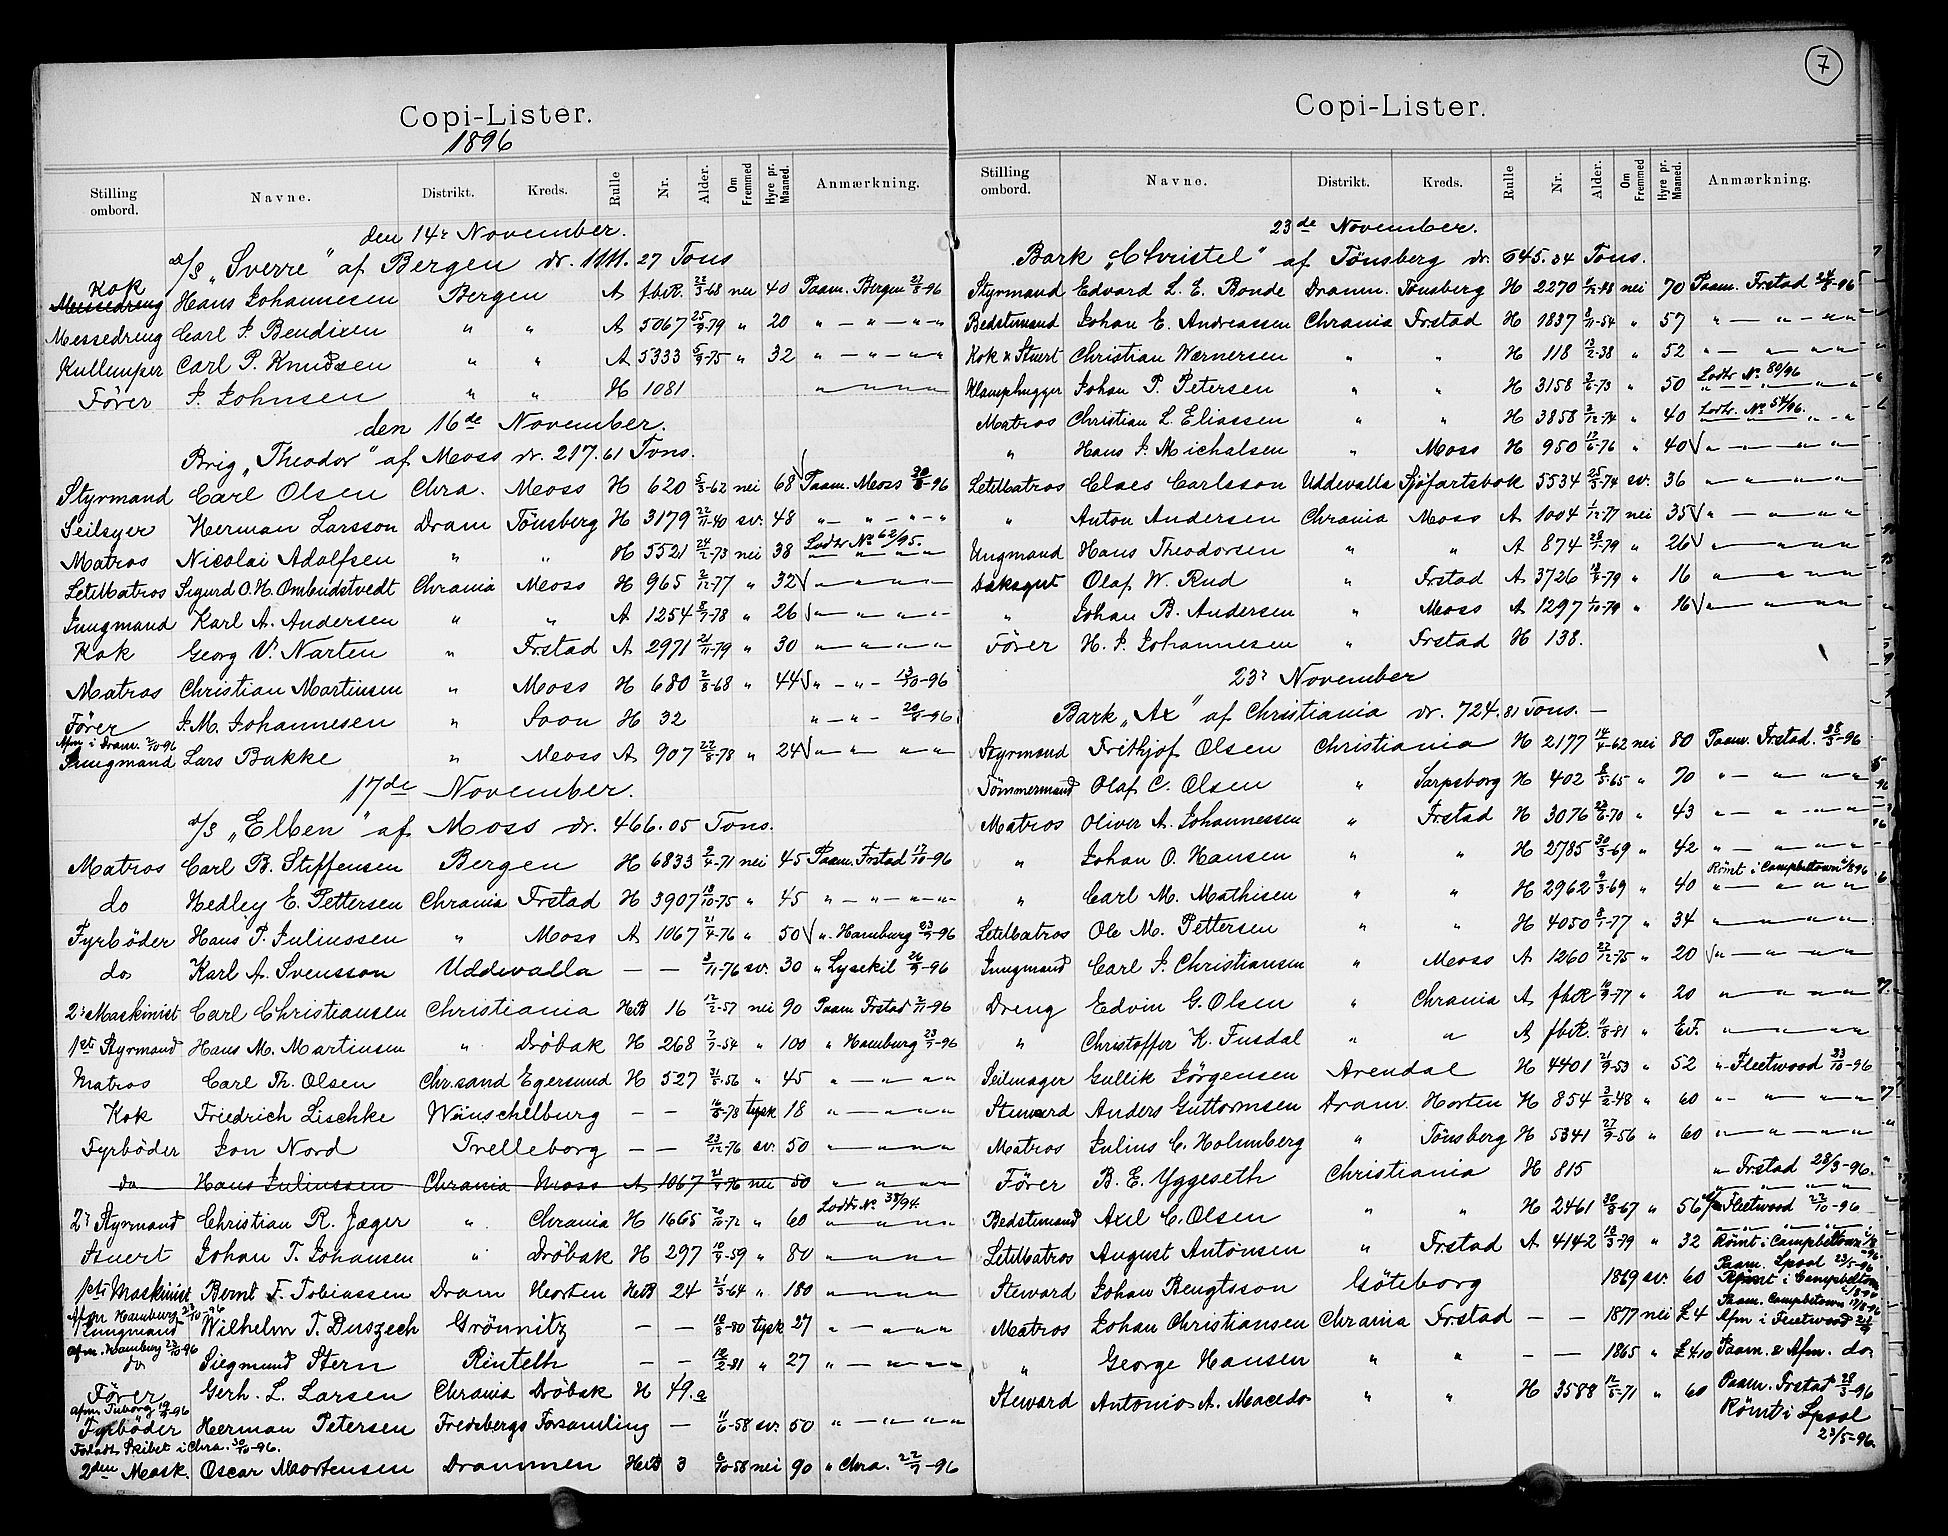 7
Copi-Lister.
1896
Stilling ombord. Navne. Distrikt. Kreds. Rulle Nr. Alder. Om Fremmed Hyre pr. Maaned. Anmærkning.
den 14r November.
D/S „Sverre“ af Bergen dr. 1111.27 Tons
Kok
Messedreng Hans Johannesen Bergen A fbR. 22/3-68 nei 40 Paam. Bergen 22/8-96
Messedreng Carl J. Bendixen " " A 5067 25/9-79 " 20 " — " — " "
Kullemper Carl P. Knudsen " " A 5333 5/9-75 " 32 " — " — " "
Förer J. Johnsen " " H 1081 " — " " "
den 16de November.
Brig „Theodor“ af Moss dr. 217.61 Tons.
Styrmand Carl Olsen Chra. Moss H 620 5/3-62 nei 68 Paam. Moss 30/8-96
Seilsyer Herman Larsson Dram Tönsberg H 3179 22/11-40 sv. 48 " — " — " "
Matros Nicolai Adolfsen " " H 5521 24/2-73 nei 38 Lodtr No 62/95.
LetMatros Sigurd O. H. Ombudstvedt Chrania Moss H 965 2/12-77 " 32 " — " — " "
Jungmand Karl A. Andersen " " A 1254 8/7-78 " 26 " — " — " "
Kok Georg V. Narten " Frstad A 2971 21/11-79 " 30 " — " — " "
Matros Christian Martinsen " Moss H 680 2/8-68 " 44 " — " — 13/10-96
Förer J. M. Johannesen " Soon H 32 " — " — 20/8-96
Afm i Dram. 2/10-96
Jungmand Lars Bakke " Moss A 907 22/8-78 " 24 " — " " "
17de November.
D/S „Elben“ af Moss dr. 466.05 Tons.
Matros Carl B. Steffensen Bergen H 6833 2/4-71 nei 45 Paam. Frstad 17/10-96
do Hedley E. Pettersen Chrania Frstad H 3907 18/10-75 " 45 " — " — " "
Fyrböder Hans P. Juliussen " Moss A 1067 21/4-76 " 50 " Hamburg 23/7-96
do Karl A. Svensson Uddevalla — — 3/11-76 sv. 30 " Lysekil 26/9-96
2r Maskinist Carl Christiansen Christiania HB 16 12/2-57 nei 90 Paam Frstad 2/11-96
1ste Styrmand Hans M. Martinsen " Dröbak H 268 7/7-54 " 100 " Hamburg 23/7-96
Matros Carl Th. Olsen Chr.sand Egersund H 527 21/5-56 " 45 " — " " "
Kok Friedrich Lischke Wünschelburg — — 16/8-78 tysk 18 " — " " "
Fyrböder Jon Nord Trelleborg — — 23/12-76 sv. 50 " — " " "
do Hans Juliussen Chrania Moss A 1067 21/4-76 nei 50 " — " " "
2r Styrmand Christian R. Jæger " Chrania H 1665 20/10-72 " 60 Lodtr No 38/94
Stuert Johan T. Johansen " Dröbak H 297 10/9-59 " 80 " — " " "
1ste Maskinist Bernt F. Tobiassen Dram Horten HB 24 21/3-64 " 180 " — " " "
Afm Hamburg 23/10-96
Jungmand Wilhelm T. Duszech Grönnitz — — 18/8-80 tysk 27 " — " " "
Afm. Hamburg 23/10-96
do Siegmund Stern Rinteln — — 12/2-81 " 27 " — " " "
Förer Gerh. L. Larsen Chrania Dröbak H 49.a
Afm Tuborg 19/9-96
Fyrböder Herman Petersen Fredsbergs Forsamling — 11/6-58 sv. 50 " — " " "
Forladt Skibet i Chra. 30/10-96.
2den Mask. Oscar Mortensen Drammen HB 3 8/10-58 nei 90 " Chra. 22/7-96
Copi-Lister.
Stilling ombord. Navne. Distrikt. Kreds. Rulle Nr. Alder. Om Fremmed Hyre pr. Maaned. Anmærkning.
23de November.
Bark „Christel“ af Tönsberg dr. 645.34 Tons.
Styrmand Edvard L. E. Bonde Dramn. Tönsberg H 2270 6/12-48 nei 70 Paam. Frstad 24/8-96
Bedstemand Johan E. Andreassen Chrania Frstad H 1837 8/11-54 " 57 " — " — " "
Kok & Stuert Christian Wærnersen " " H 118 13/2-38 " 52 " — " " "
Klamphugger Johan P. Petersen " " H 3158 3/6-73 " 50 Lodtr No 80/96
Matros Christian L. Eliassen " " H 3858 3/12-74 " 40 Lodtr. No 54/96.
" Hans J. Michalsen " Moss H 950 13/6-76 " 40 " — " " "
LetMatros Claes Carlsson Uddevalla Sjöfartsbok 5534 25/8-74 sv. 36 " — " " "
" Anton Andersen Chrania Moss A 1004 1/12-77 nei 35 " — " " "
Ungmand Hans Theodorsen " " A 874 28/7-79 " 26 " — " " "
Daksgut Olaf W. Rud " Frstad A 3726 18/9-79 " 16 " — " " "
" Johan B. Andersen " Moss A 1297 1/10-79 " 16 " — " " "
Förer H. J. Johannesen " Frstad H 138.
23r November
Bark „Ax“ af Christiania dr. 724.81 Tons. —
Styrmand Frithjof Olsen Christiania H 2177 14/4-62 nei 80 Paam. Frstad. 28/3-96
Tömmermand Olaf C. Olsen " Sarpsborg H 402 8/5-65 " 70 " — " " "
Matros Oliver A. Johannessen " Frstad H 3076 22/6-70 " 43 " — " " "
" Johan O. Hansen " " H 2785 30/3-69 " 42 " — " " "
" Carl M. Mathisen " " H 2962 9/3-69 " 40 Römt i Campbeltown 4/8 96
LetMatros Ole M. Pettersen " " H 4050 8/1-77 " 34 " — " " "
Jungmand Carl J. Christiansen " Moss A 1260 22/12-75 " 20 " — " " "
Dreng Edvin G. Olsen " Chrania A fbR 16/9-77 " 20 " — " " "
" Christoffer K. Fusdal " " A fbR. 11/8-81 " Ef. " — " " "
Seilmager Gullik Jörgensen Arendal H 4401 21/9-53 " 52 " Fleetwood 23/10-96
Steward Anders Guttormsen Dram. Horten H 854 3/2-48 " 60 " — " " "
Matros Julius C. Holmberg " Tönsberg H 5341 27/9-56 " 60 " — " " "
Förer B. E. Yggeseth Christiania H 815 " Frstad 28/3-96.
Bedstemand Axel C. Olsen " " H 2461 30/8-67 " 56 Fleetwood 22/10-96
LetMatros August Antonsen " Frstad A 4142 18/3-79 " 32 Römt i Campbeltown
Steward Johan Bengtsson Göteborg 1869 sv. 60 Paam. Lpool 23/5-96 Römt i Campbeltown
Matros Johan Christiansen Chrania Frstad — — 1877 nei £4 Paam. Campbeltown Afm i Fleetwood
" George Hansen " " — — 1865 " £4.10 Paam. & Afm. do.
Steward Antonio A. Macedo " " H 3588 12/5-71 " 60 Paam. Frstad 28/3-96
Römt i Lpool
23/5-96.